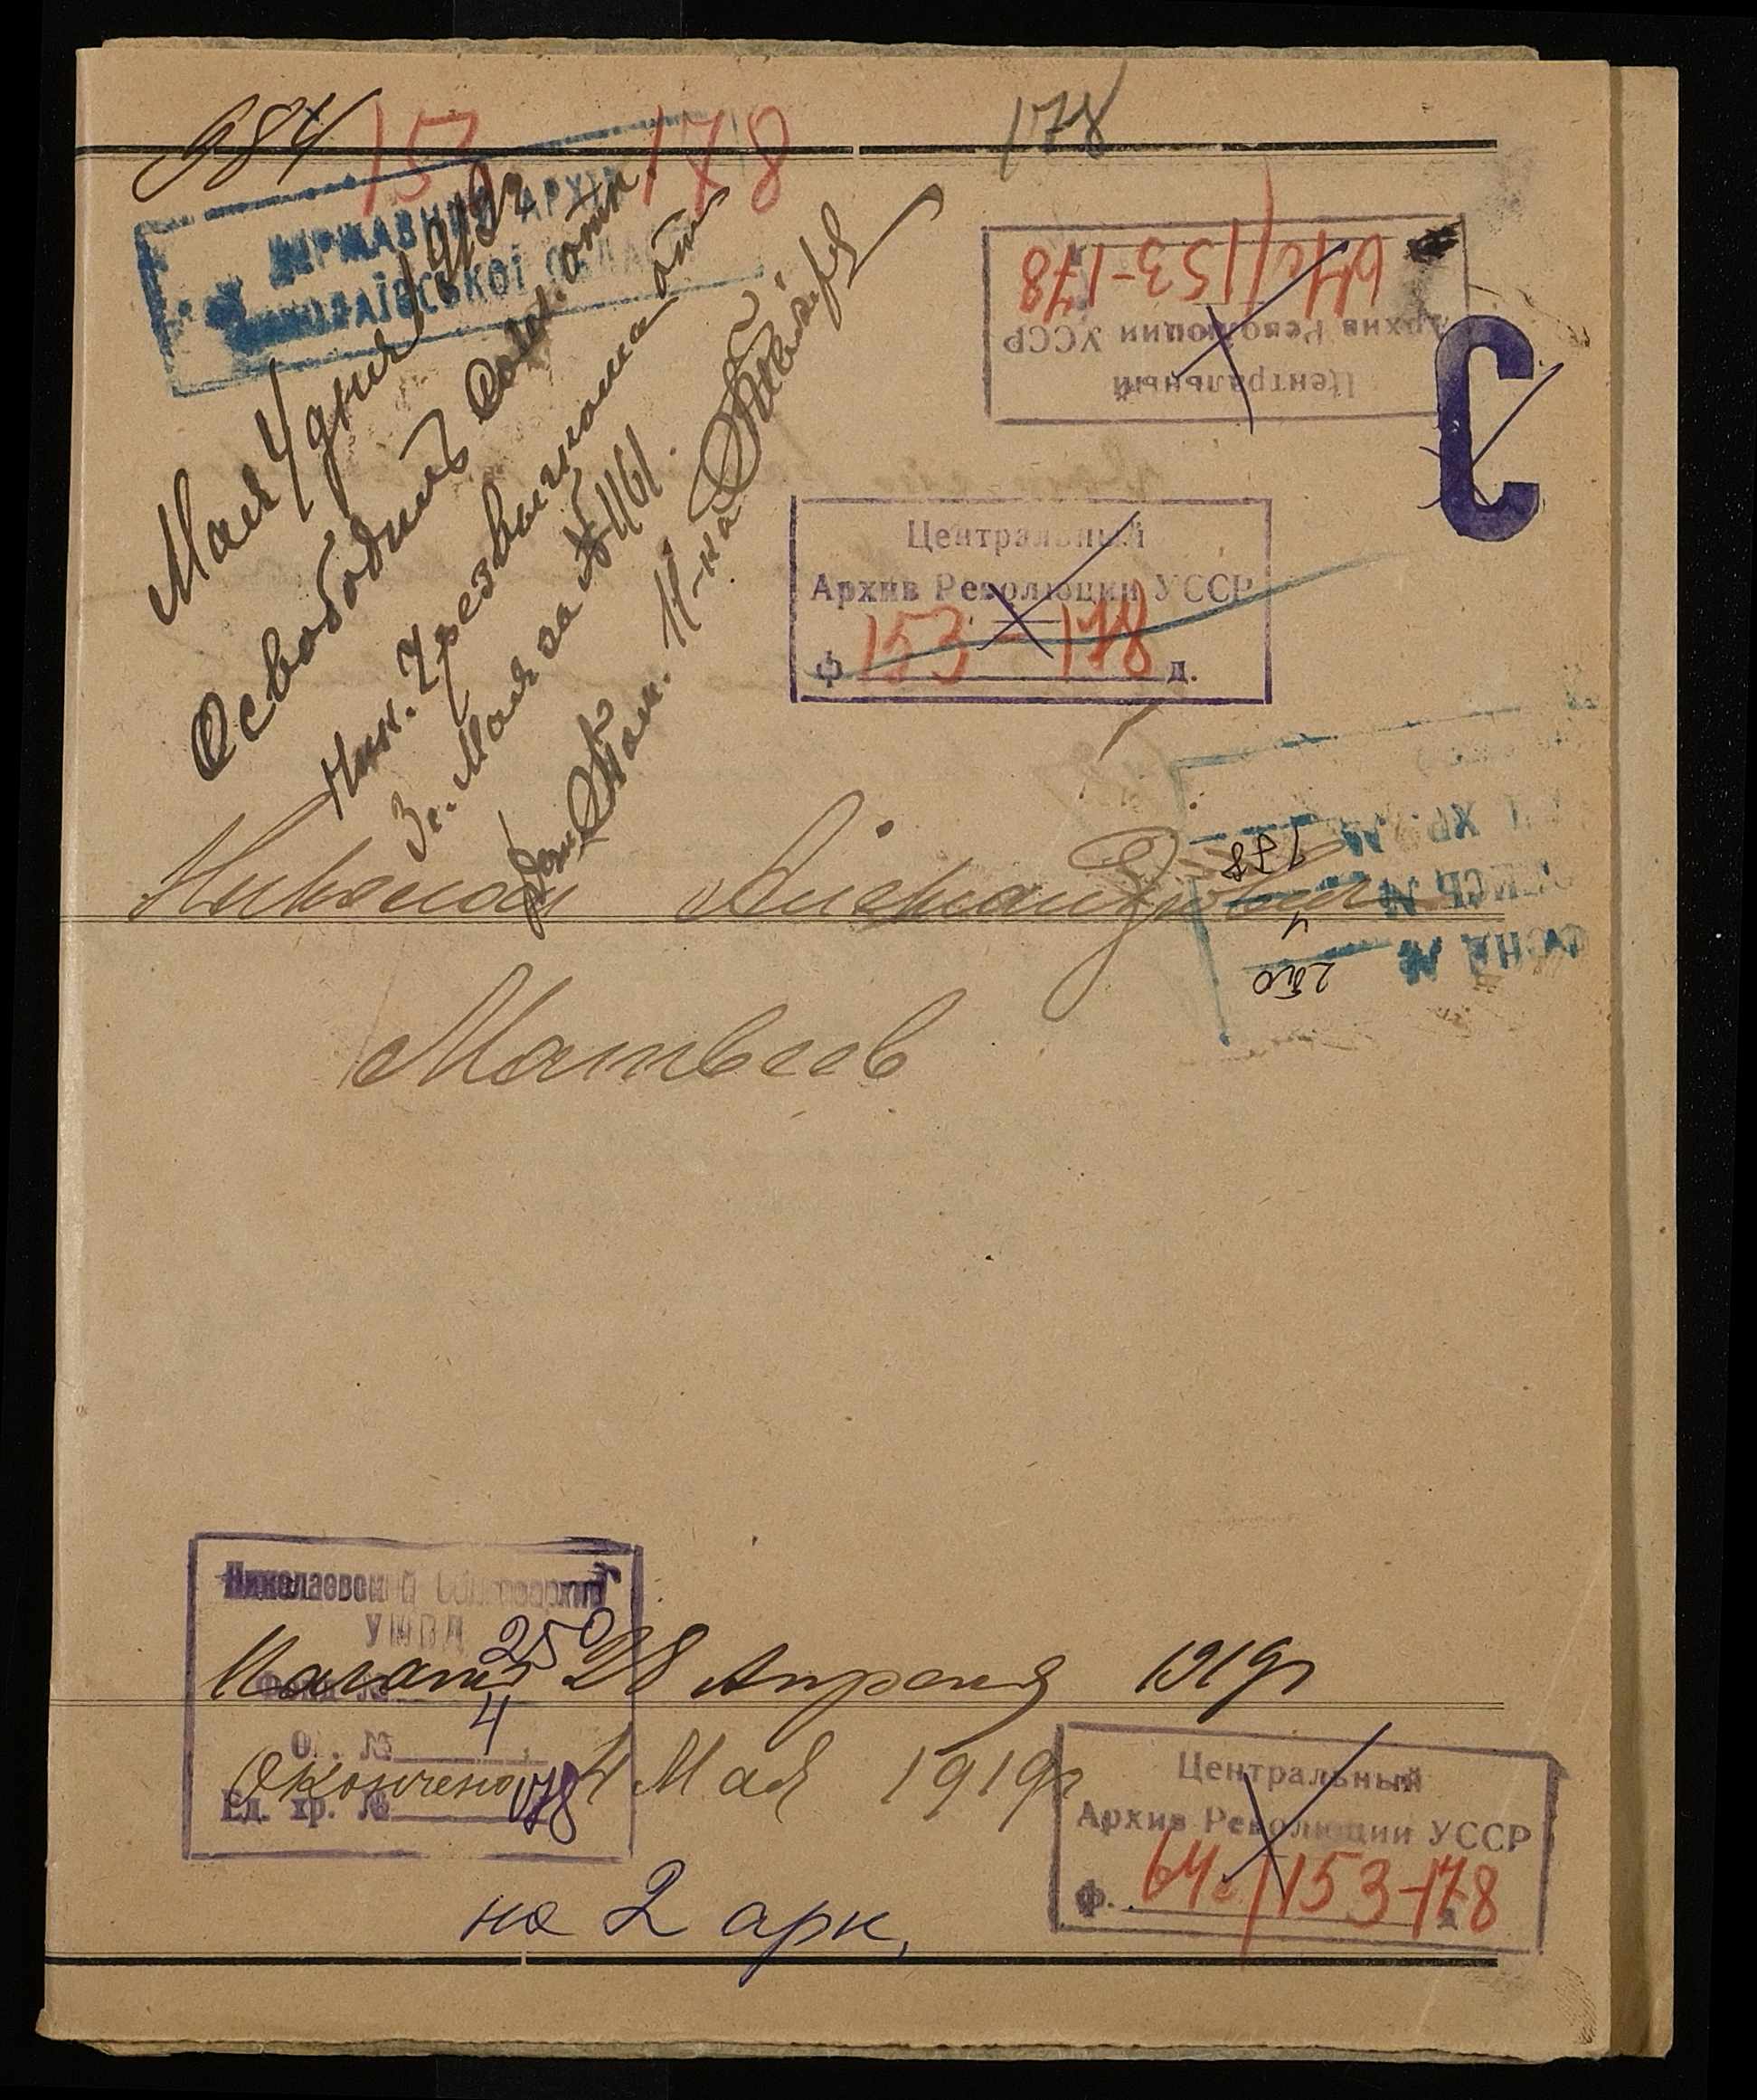 984
153 178
178
ДЕРЖАВНИЙ АРХІВ
МИКОЛАЇВСЬКОЇ
Мая 4 дня 1919 г
Освободить отн.
Ник. Чрезвычкома от
3 г. Мая за № 1161.
Центральный
Архив Революции УССР
64с/153-178
С
Центральный
Архив Революции УССР
ф 153-178 д.
ФОНД №
250
4
178
Николай Александрович
Матвеев
Николаевский Облгосархив
УМВД
Фонд № 250
Оп. № 4
Ед. хр. № 178
Начато 28 Апреля 1919 г
Окончено 4 Мая 1919 г
Центральный
Архив Революции УССР
ф. 64с/153-178
на 2 арк.